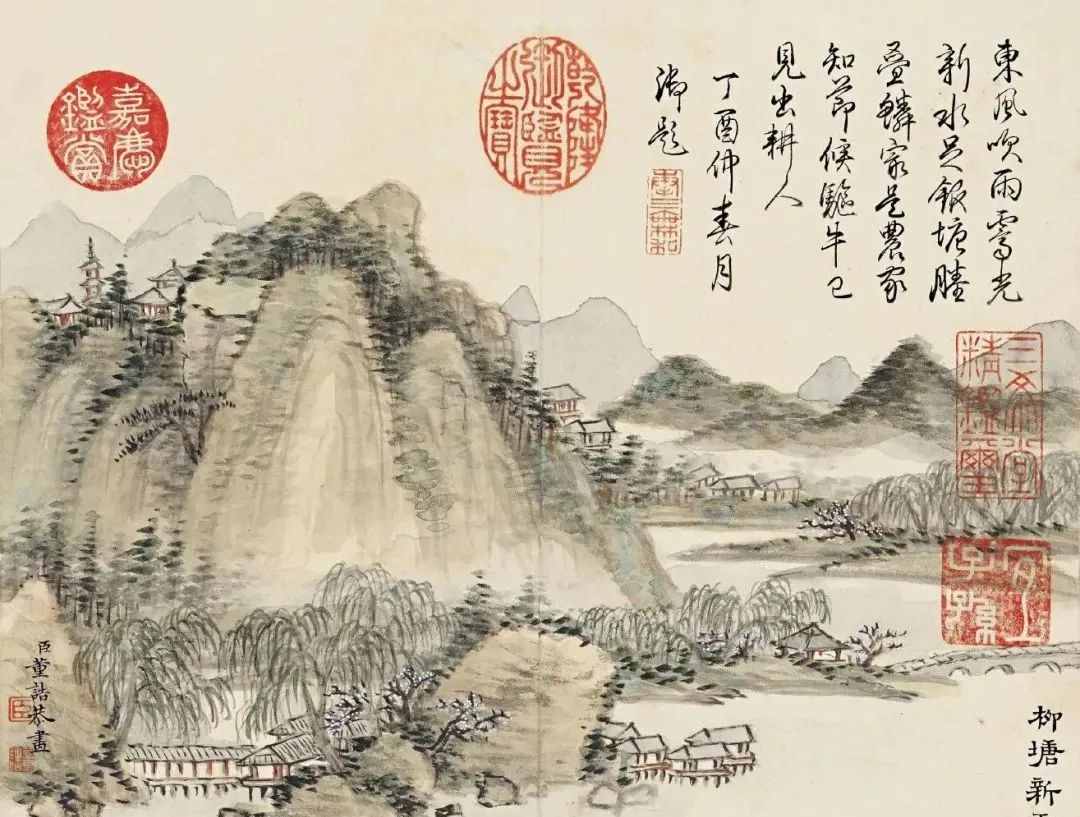 東風吹雨霽光
新水足銀塘塍
疊鱗㝡是農家
知節候驅牛已
見出耕人
丁酉仲春月
御題
乾隆
御覽
之寶
嘉慶
鑑賞
三希堂
精鑑璽
宜
子孫
柳塘新
臣董誥恭畫
臣